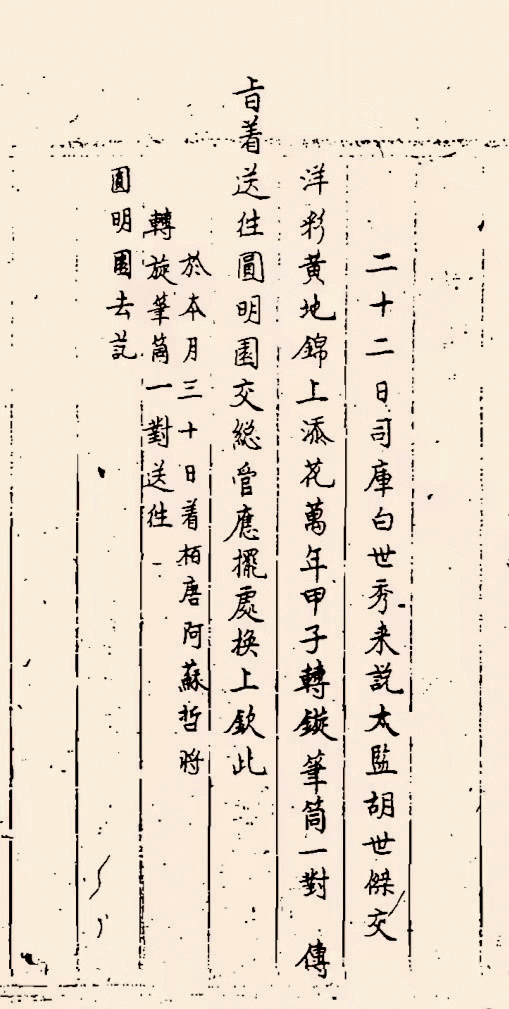 二十二日司庫白世秀来說太監胡世傑交
洋彩黃地錦上添花萬年甲子轉鏇筆筒一對 傳
旨着送往圓明園交総管應擺處换上欽此
於本月三十日着栢唐阿蘇哲將
轉旋筆筒一對送往
圓明園去訖